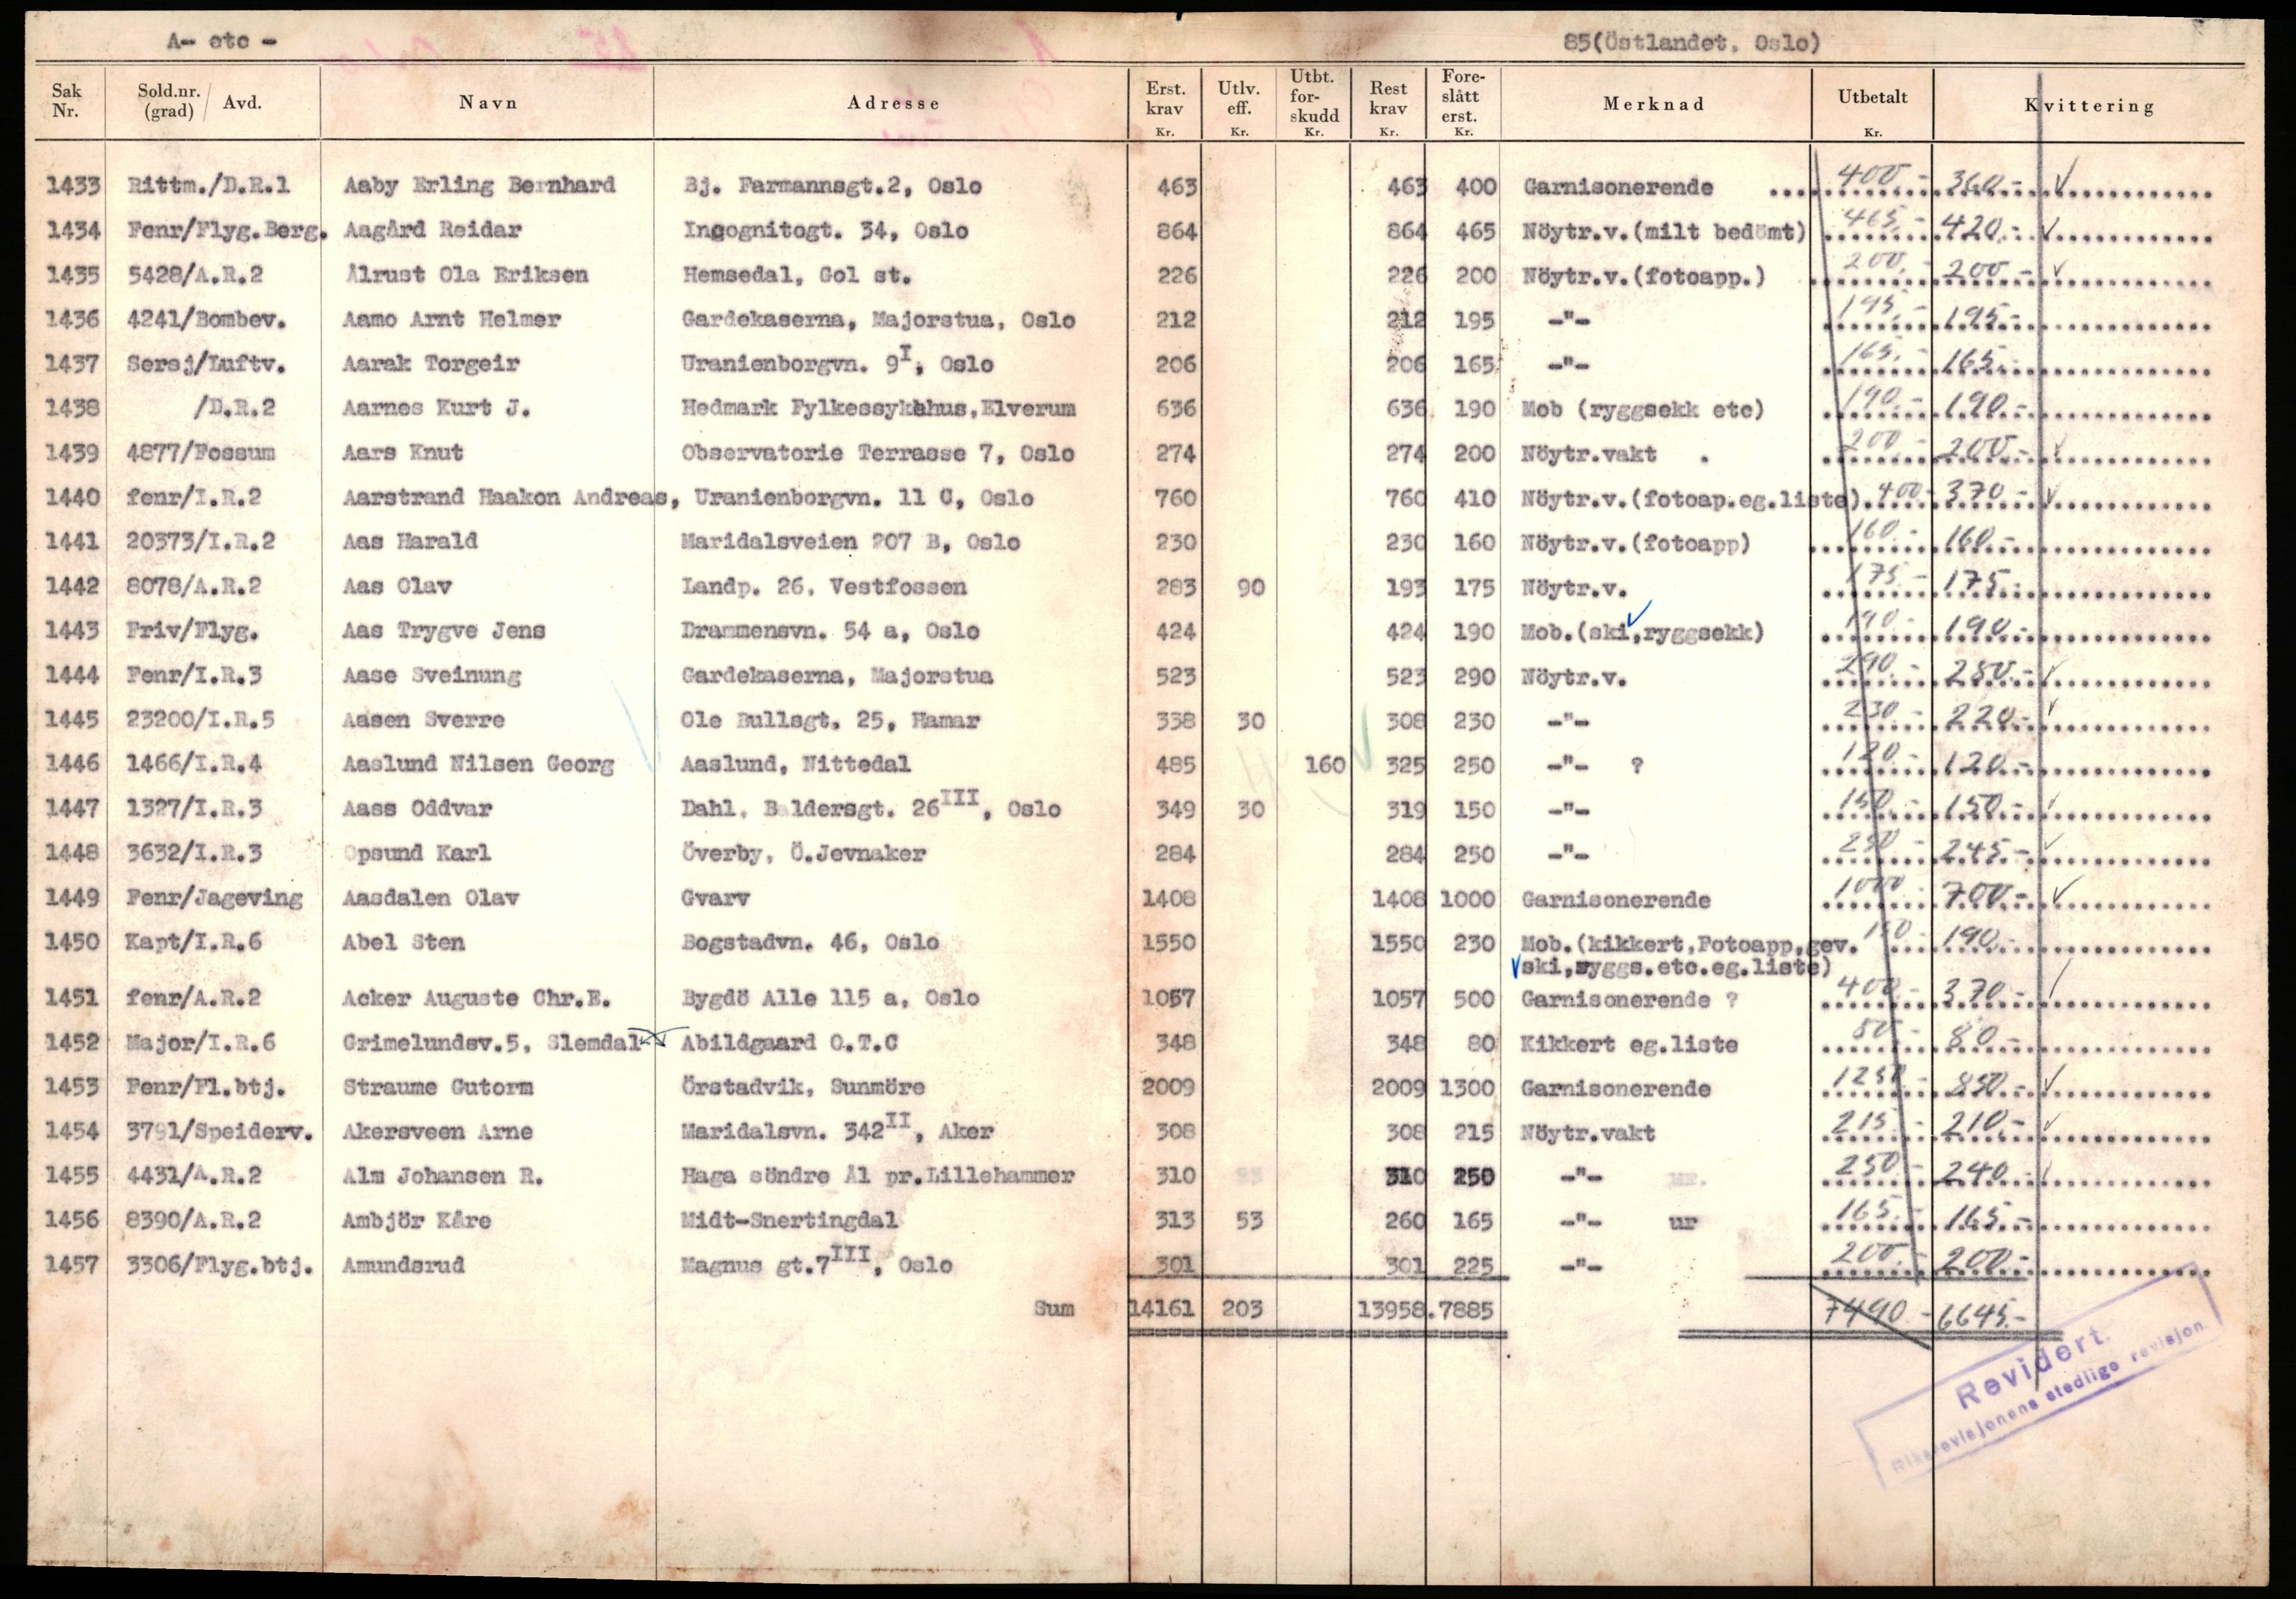 A- etc - 85(Östlandet, Oslo)
Sak Nr. Sold.nr. (grad) / Avd. Navn Adresse Erst. krav Kr. Utlv. eff. Kr. Utbt. for- skudd Kr. Rest krav Kr. Fore- slått erst. Kr. Merknad Utbetalt Kr. Kvittering
1433 Rittm./D.R.1 Aaby Erling Bernhard Bj. Farmannsgt.2, Oslo 463 463 400 Garnisonerende 400.- 360.- ✓
1434 Fenr/Flyg.Berg. Aagård Reidar Incognitogt. 34, Oslo 864 864 465 Nöytr.v.(milt bedömt) 465.- 420.- ✓
1435 5428/A.R.2 Ålrust Ola Eriksen Hemsedal, Gol st. 226 226 200 Nöytr.v.(fotoapp.) 200.- 200.- ✓
1436 4241/Bombev. Aamo Arnt Helmer Gardekaserna, Majorstua, Oslo 212 212 195 -"- 195.- 195.-
1437 Sersj/Luftv. Aarak Torgeir Uranienborgvn. 9I, Oslo 206 206 165 -"- 165.- 165.-
1438 /D.R.2 Aarnes Kurt J. Hedmark Fylkessykehus,Elverum 636 636 190 Mob (ryggsekk etc) 190.- 190.-
1439 4877/Fossum Aars Knut Observatorie Terrasse 7, Oslo 274 274 200 Nöytr.vakt . 200.- 200.- ✓
1440 fenr/I.R.2 Aarstrand Haakon Andreas, Uranienborgvn. 11 C, Oslo 760 760 410 Nöytr.v.(fotoap.eg.liste) 400.- 370.- ✓
1441 20373/I.R.2 Aas Harald Maridalsveien 207 B, Oslo 230 230 160 Nöytr.v.(fotoapp) 160.- 160.-
1442 8078/A.R.2 Aas Olav Landp. 26, Vestfossen 283 90 193 175 Nöytr.v. 175.- 175.-
1443 Priv/Flyg. Aas Trygve Jens Drammensvn. 54 a, Oslo 424 424 190 Mob.(ski,ryggsekk) 190.- 190.-
1444 Fenr/I.R.3 Aase Sveinung Gardekaserna, Majorstua 523 523 290 Nöytr.v. 290.- 280.- ✓
1445 23200/I.R.5 Aasen Sverre Ole Bullsgt. 25, Hamar 338 30 308 230 -"- 230.- 220.- ✓
1446 1466/I.R.4 Aaslund Nilsen Georg Aaslund, Nittedal 485 160 325 250 -"- ? 120.- 120.-
1447 1327/I.R.3 Aass Oddvar Dahl, Baldersgt. 26III, Oslo 349 30 319 150 -"- 150.- 150.- ✓
1448 3632/I.R.3 Opsund Karl Överby, Ö.Jevnaker 284 284 250 -"- 250.- 245.- ✓
1449 Fenr/Jageving Aasdalen Olav Gvarv 1408 1408 1000 Garnisonerende 1000.- 700.- ✓
1450 Kapt/I.R.6 Abel Sten Bogstadvn. 46, Oslo 1550 1550 230 Mob.(kikkert,Fotoapp,gev. 190.-
✓ski,ryggs.etc.eg.liste)
1451 fenr/A.R.2 Acker Auguste Chr.E. Bygdö Alle 115 a, Oslo 1057 1057 500 Garnisonerende ? 400.- 370.- ✓
1452 Major/I.R.6 Grimelundsv.5, Slemdal Abildgaard O.T.C 348 348 80 Kikkert eg.liste 80.- 80.-
1453 Fenr/Fl.btj. Straume Gutorm Örstadvik, Sunmöre 2009 2009 1300 Garnisonerende 1250.- 850.- ✓
1454 3791/Speiderv. Akersveen Arne Maridalsvn. 342II, Aker 308 308 215 Nöytr.vakt 215.- 210.- ✓
1455 4431/A.R.2 Alm Johansen R. Haga söndre Ål pr.Lillehammer 310 310 250 -"- 250.- 240.- ✓
1456 8390/A.R.2 Ambjör Kåre Midt-Snertingdal 313 53 260 165 -"- ur 165.- 165.-
1457 3306/Flyg.btj. Amundsrud Magnus gt.7III, Oslo 301 301 225 -"- 200.- 200.-
Sum 14161 203 13958.7885 7490.- 6645.-
Revidert.
Riksrevisjonens stedlige revisjon.